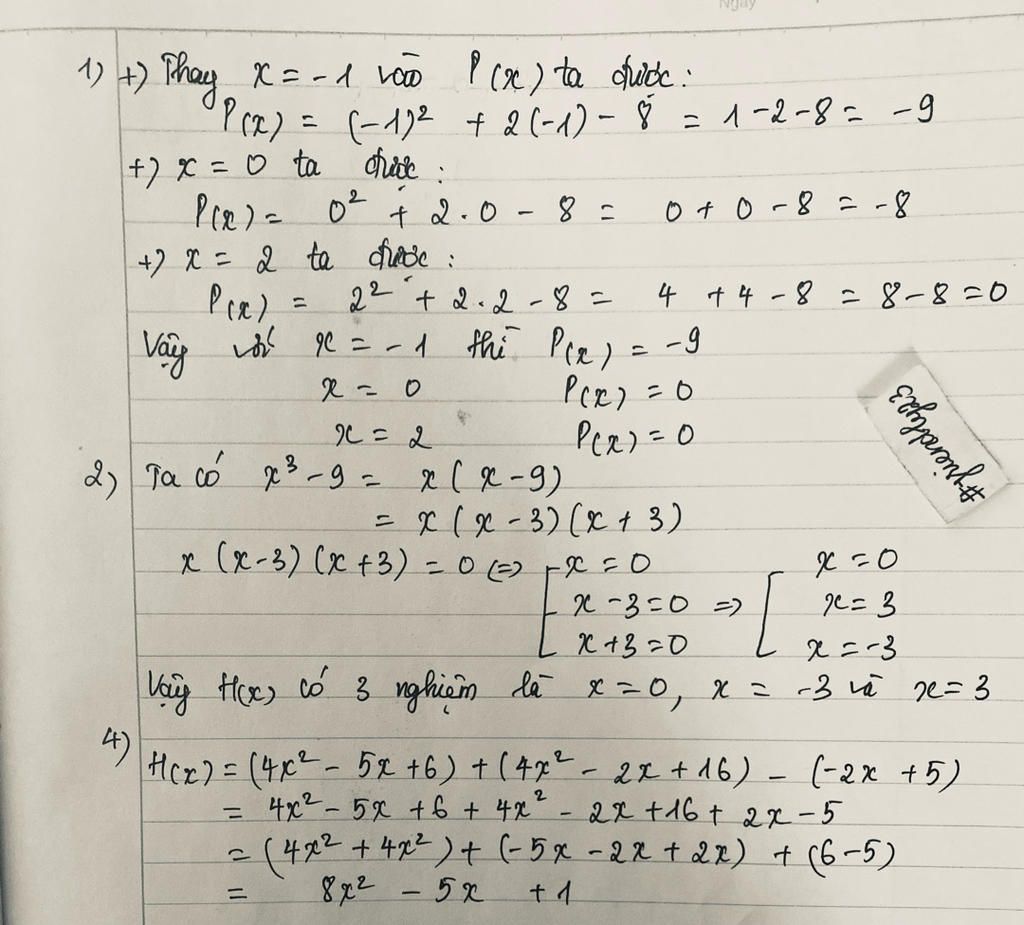 Ngày
1) +) Thay x = -1 vào P(x) ta được:
P(x) = (-1)² + 2(-1) - 8 = 1 - 2 - 8 = -9
+) x = 0 ta được:
P(x) = 0² + 2.0 - 8 = 0 + 0 - 8 = -8
+) x = 2 ta được:
P(x) = 2² + 2.2 - 8 = 4 + 4 - 8 = 8 - 8 = 0
Vậy với x = -1 thì P(x) = -9
x = 0 P(x) = 0
x = 2 P(x) = 0
2) Ta có x³ - 9 = x(x - 9)
= x(x - 3)(x + 3)
x(x-3)(x+3) = 0 <=> [ x = 0 x = 0
x - 3 = 0 => [ x = 3
x + 3 = 0 x = -3
Vậy H(x) có 3 nghiệm là x = 0, x = -3 và x = 3
4) H(x) = (4x² - 5x + 6) + (4x² - 2x + 16) - (-2x + 5)
= 4x² - 5x + 6 + 4x² - 2x + 16 + 2x - 5
= (4x² + 4x²) + (-5x - 2x + 2x) + (6 - 5)
= 8x² - 5x + 1